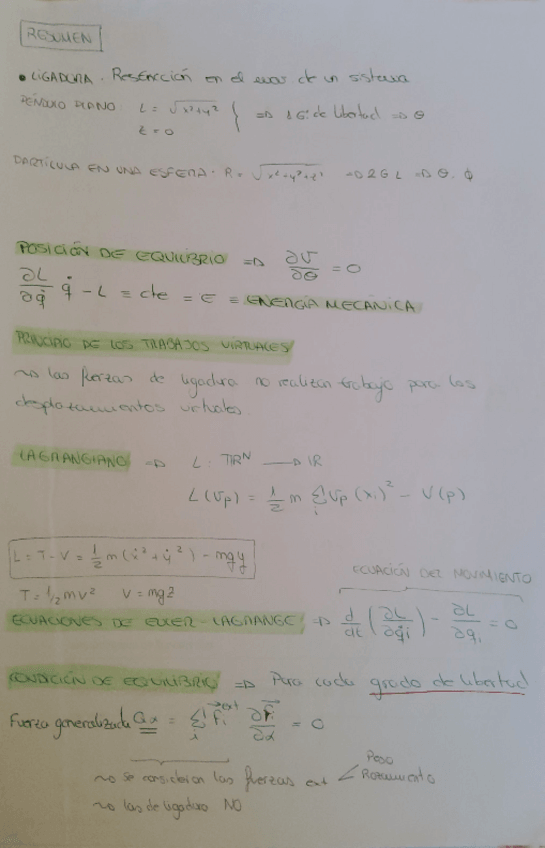 RESUMEN
• LIGADURA. Restricción en el mov de un sistema
PÉNDULO PLANO: L = √x²+y² } ⇒ 1 G. de libertad ⇒ θ
z = 0
PARTÍCULA EN UNA ESFERA. R = √x²+y²+z² ⇒ 2 G L ⇒ θ, φ
POSICIÓN DE EQUILIBRIO ⇒ ∂V/∂θ = 0
∂L/∂q̇ q̇ - L = cte = E = ENERGÍA MECÁNICA
PRINCIPIO DE LOS TRABAJOS VIRTUALES
~> las fuerzas de ligadura no realizan trabajo para los
desplazamientos virtuales
LAGRANGIANO ⇒ L: Tℝᴺ → ℝ
L(Vp) = 1/2 m Σᵢ Vp(xᵢ)² - V(p)
L = T - V = 1/2 m(ẋ² + ẏ²) - mgy
ECUACIÓN DEL MOVIMIENTO
T = 1/2 mv² V = mgz
ECUACIONES DE EULER-LAGRANGE ⇒ d/dt (∂L/∂q̇i) - ∂L/∂qi = 0
CONDICIÓN DE EQUILIBRIO ⇒ Para cada grado de libertad
Fuerza generalizada Qα = Σᵢ F⃗ᵢᵉˣᵗ ∂r⃗ᵢ/∂α = 0
~> se consideran las fuerzas ext < Peso
Rozamiento
~> las de ligadura NO